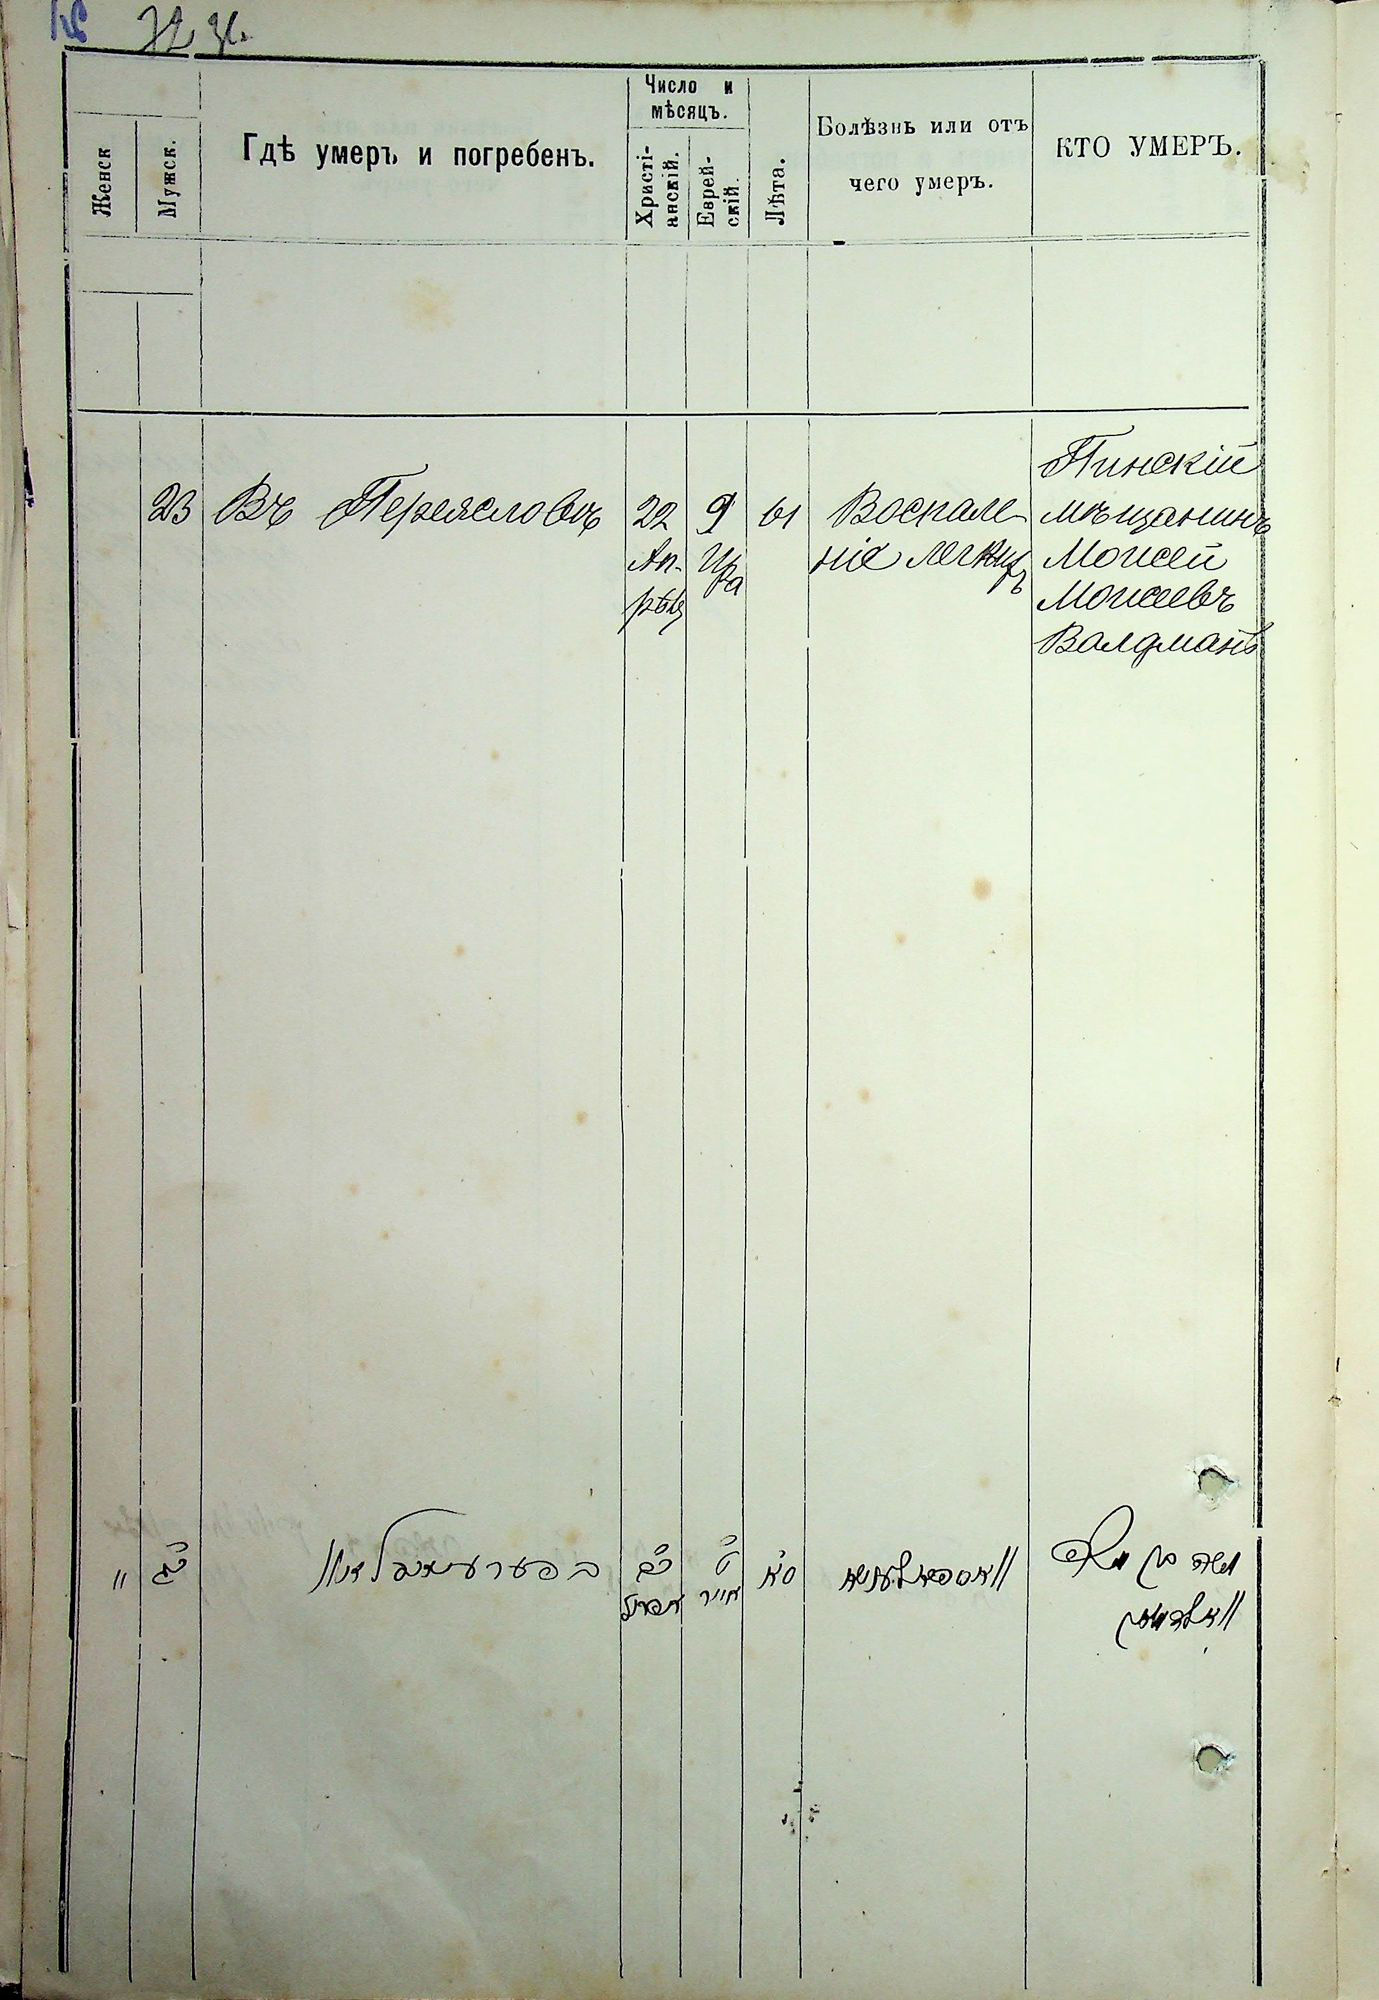 Женск
Мужск.
Гдѣ умеръ и погребенъ.
Число и
мѣсяцъ.
Христі-
анскій.
Еврей-
скій.
Лѣта.
Болѣзнь или отъ
чего умеръ.
КТО УМЕРЪ.
23
Въ Переясловѣ
22
Ап-
рѣля
9
Ира
61
Воспале-
ніе легкихъ
Пинскій
мѣщанинъ
Моисей
Моисеевъ
Валдманъ
"
כג
כב
אפריל
ט
אייר
סא
משה בן
וואלדמאן